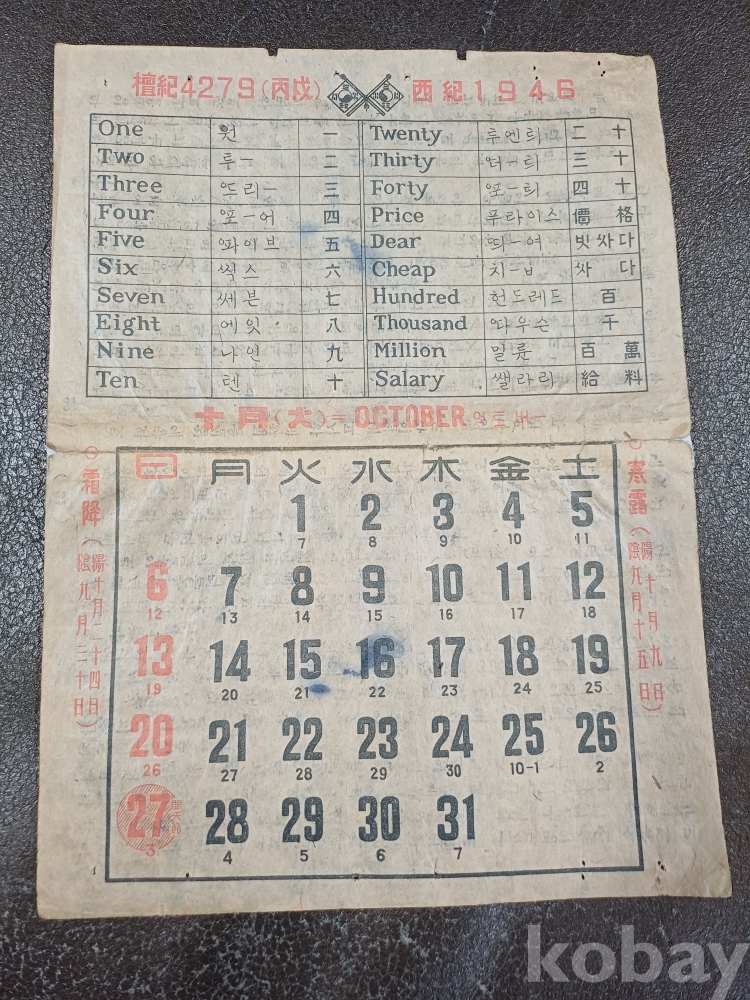 檀紀4279(丙戊) 西紀1946
One 원 一 Twenty 투엔틔 二十
Two 투ー 二 Thirty 떠ー틔 三十
Three 뜨리ー 三 Forty 또ー틔 四十
Four 또ー어 四 Price 푸라이스 價格
Five 빠이브 五 Dear 띄ー여 빗싸다
Six 씩스 六 Cheap 치ーㅂ 싸다
Seven 쎄븐 七 Hundred 헌드레드 百
Eight 에잇 八 Thousand 따우슨 千
Nine 나인 九 Million 밀륜 百萬
Ten 텐 十 Salary 쌜라리 給料
十月(大)=OCTOBER 옥토버ー
日 月 火 水 木 金 土
1 2 3 4 5
7 8 9 10 11
6 7 8 9 10 11 12
12 13 14 15 16 17 18
13 14 15 16 17 18 19
19 20 21 22 23 24 25
20 21 22 23 24 25 26
26 27 28 29 30 10-1 2
27 開天節 28 29 30 31
3 4 5 6 7
○寒露(陽十月九日 陰九月十五日)
○霜降(陽十月二十四日 陰九月三十日)
kobay